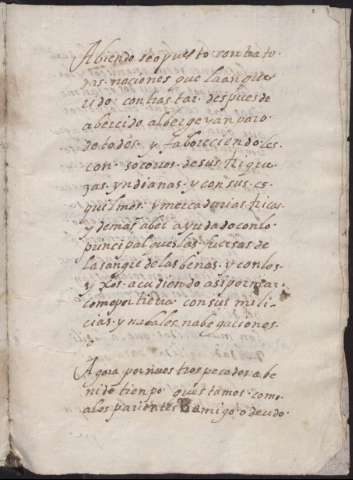 Abiendo seo puesto contra to
das naciones que la an que
rido contrastar despues de
aber sido alberge y anparo
de todos y faboreciendoles
con socoros de sus rique
zas yndianas y con sus es
quilmos y mercadurias ricas
y demas abei ayudado con lo
principal que es las fuersas de
la sangre de las benas y con los
yxos acudiendo asi por mar
como por tierra con sus mili
cias y nabales nabegaciones
Agora por nuestros pecados a be
nido tienpo quistamos como
a los parientes amigo o deudo